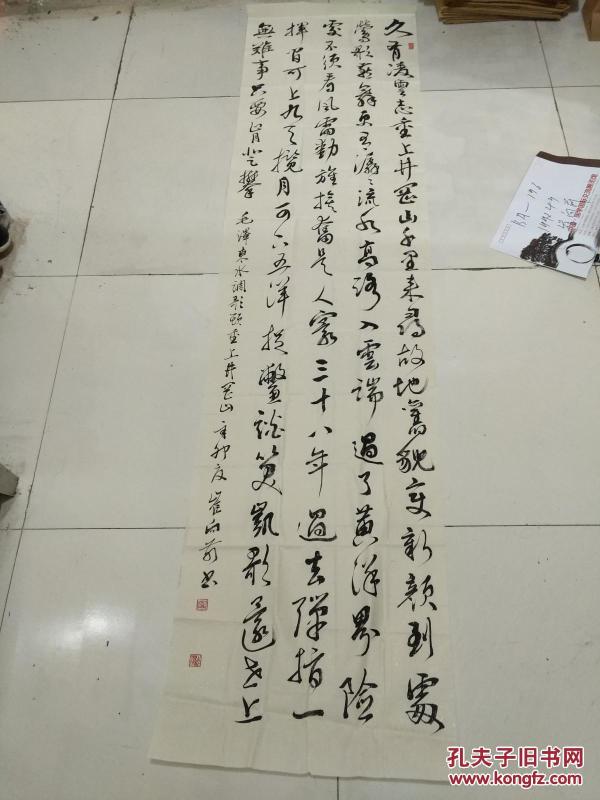 久有凌雲志重上井岡山千里來尋故地舊貌變新顔到處
鶯歌燕舞更有潺々流水高路入雲端過了黄洋界險
處不須看風雷動旌旗奮是人寰三十八年過去彈指一
揮間可上九天攬月可下五洋捉鱉談笑凱歌還世上
無難事只要肯登攀 毛澤東水調歌頭重上井岡山 辛卯夏 崔向前書
孔夫子旧书网
www.kongfz.com